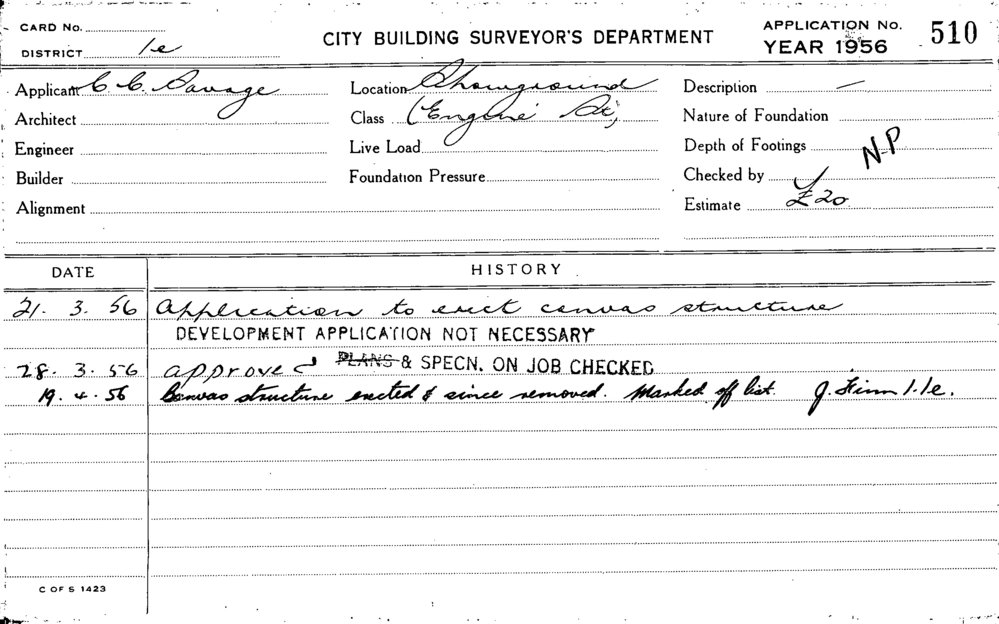 CARD No.
DISTRICT 1e
CITY BUILDING SURVEYOR'S DEPARTMENT
APPLICATION No. 510
YEAR 1956
Applicant C. C. Savage
Location Showground
Description —
Architect
Class (Engine St,)
Nature of Foundation
Engineer
Live Load
Depth of Footings
N.P
Builder
Foundation Pressure
Checked by
Alignment
Estimate £20
DATE HISTORY
21. 3. 56 Application to erect canvas structure
DEVELOPMENT APPLICATION NOT NECESSARY
28. 3. 56 approved PLANS & SPECN. ON JOB CHECKED
19. 4. 56 Canvas structure erected & since removed. Marked off list. J. 1.1e.
C OF S 1423